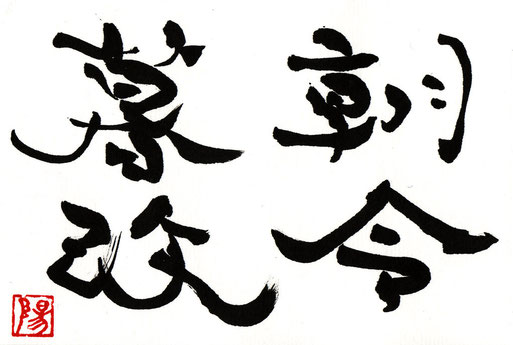 朝令
暮改
陽